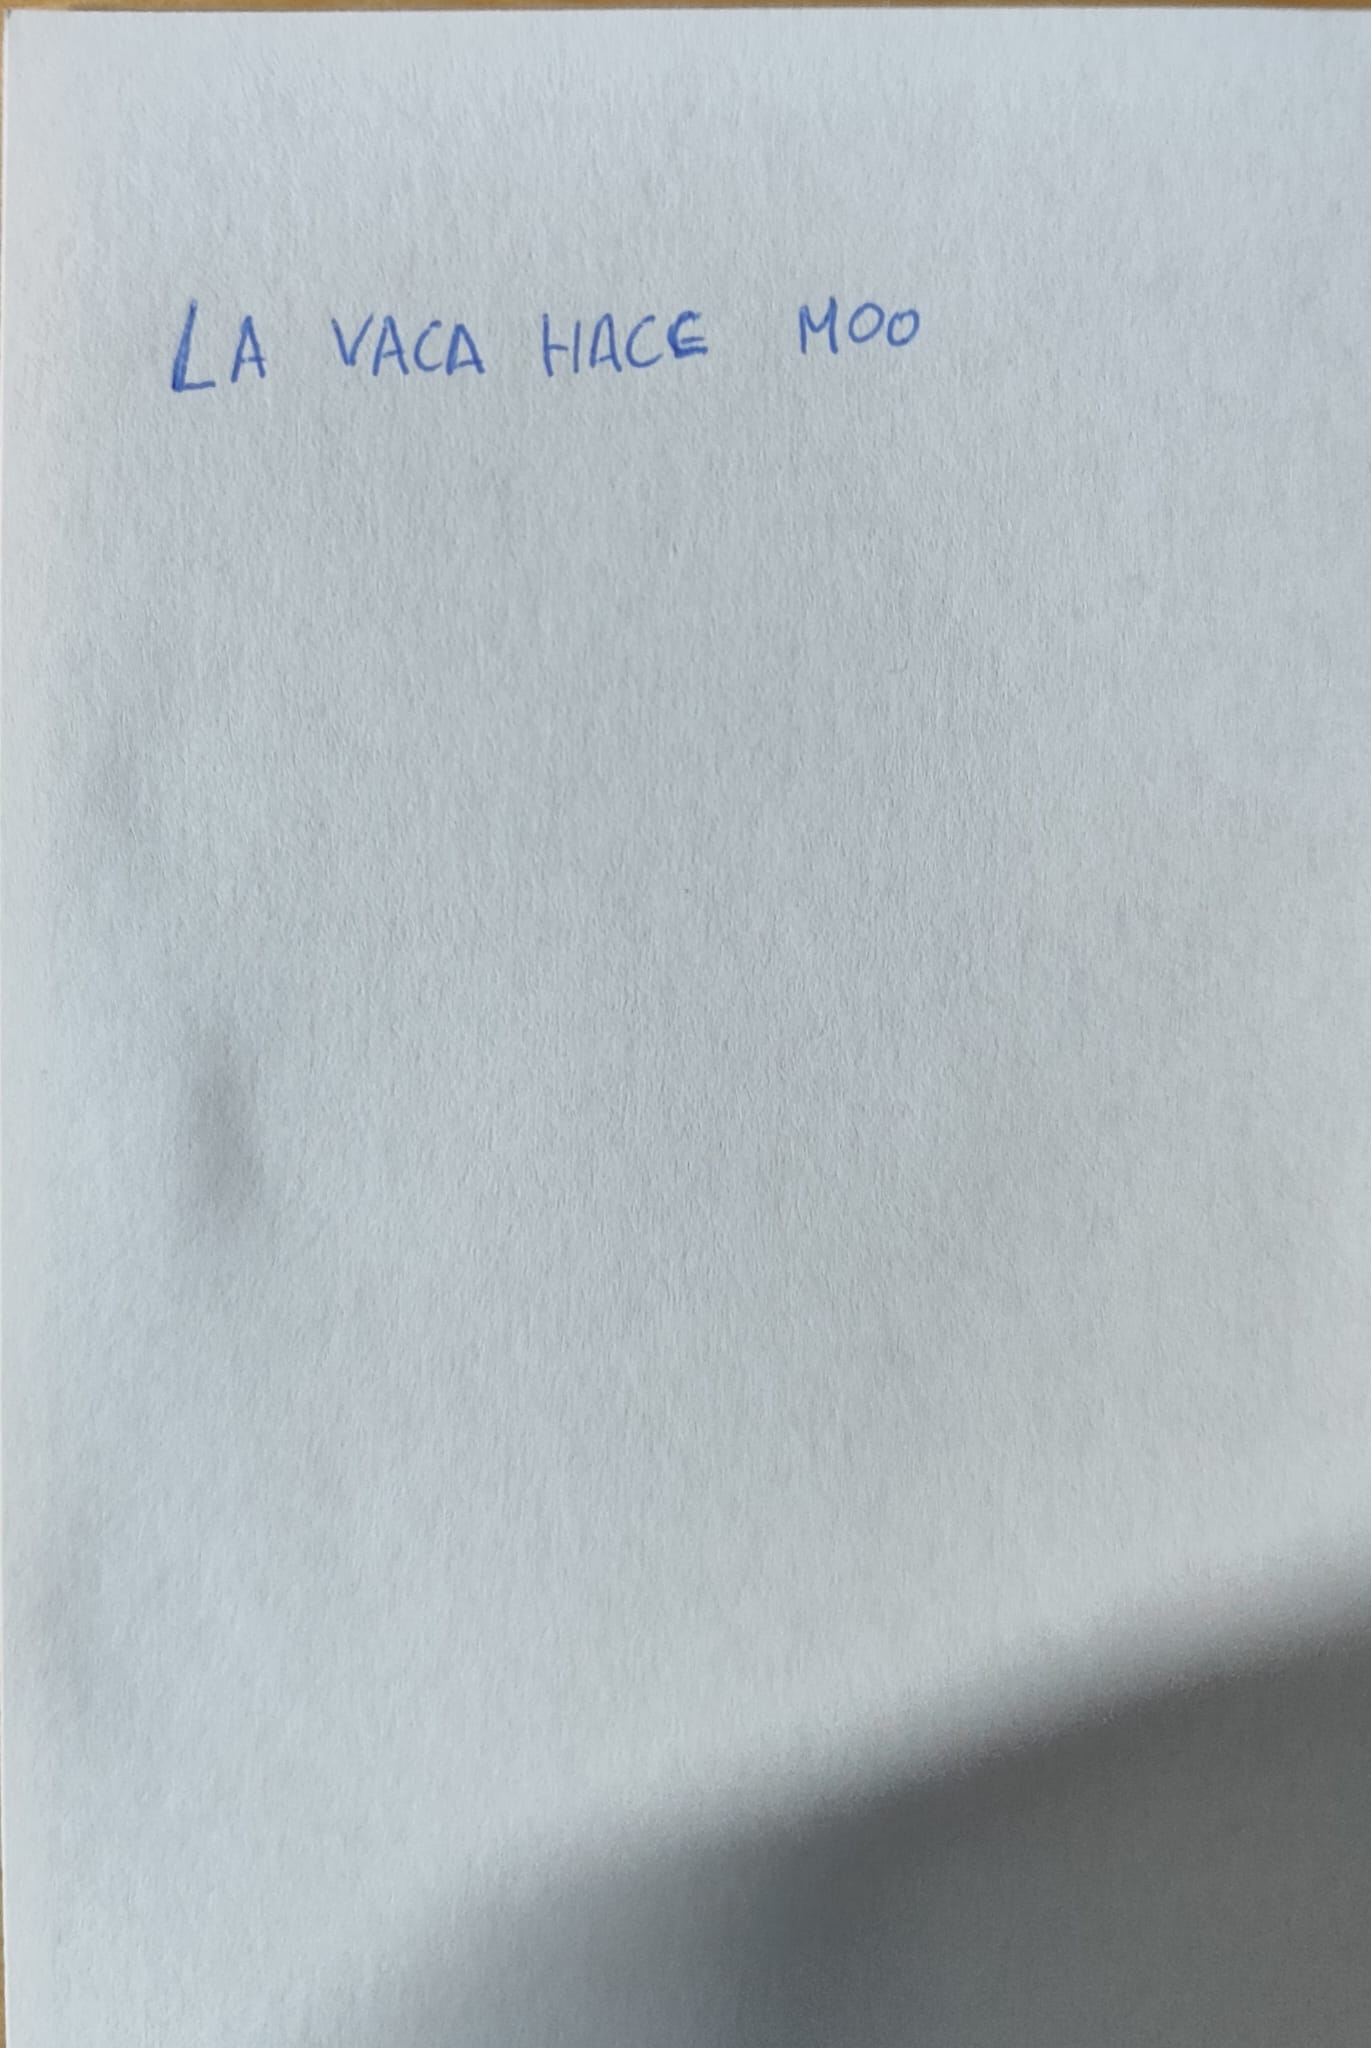 LA VACA HACE MOO